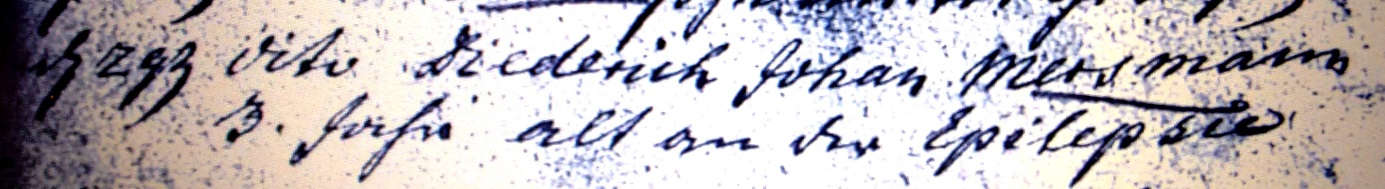 dito Diederich Johan Mersmann
3. Jahr alt an der Epilepsie